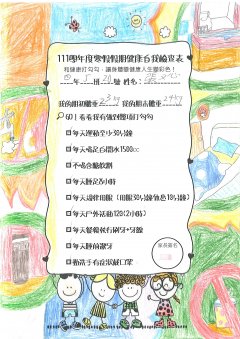 111學年度寒假假期健康自我檢查表
和健康打勾勾，讓身體更健康人生變彩色！
年 班 號 姓名：
我的期初體重 我的期末體重
60）看看我有做到哪項打勾勾
每天運動至少30分鐘
每天喝足白開水1500cc
不喝含糖飲料
每天睡足8小時
每天規律用眼（用眼30分鐘休息10分鐘）
每天戶外活動120(2小時)
每天餐後就有刷牙+牙線
每天睡前潔牙
勤洗手有症狀戴口罩
家長簽名